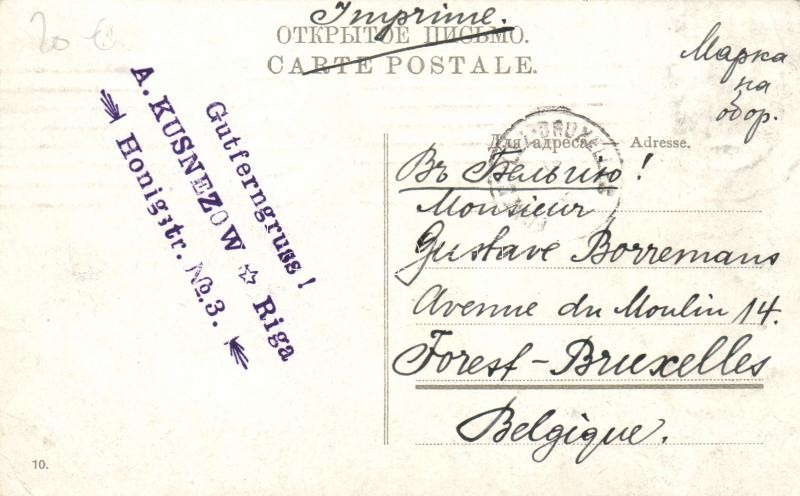 20 €
Imprimé.
ОТКРЫТОЕ ПИСЬМО.
CARTE POSTALE.
Марка
на
обор.
Gutferngruss!
A. KUSNEZOW ☆ Riga
Honigstr. No. 3.
Для адреса. Adresse.
Въ Бельгию!
Monsieur
Gustave Borremans
Avenue du Moulin 14.
Forest-Bruxelles
Belgique.
10.